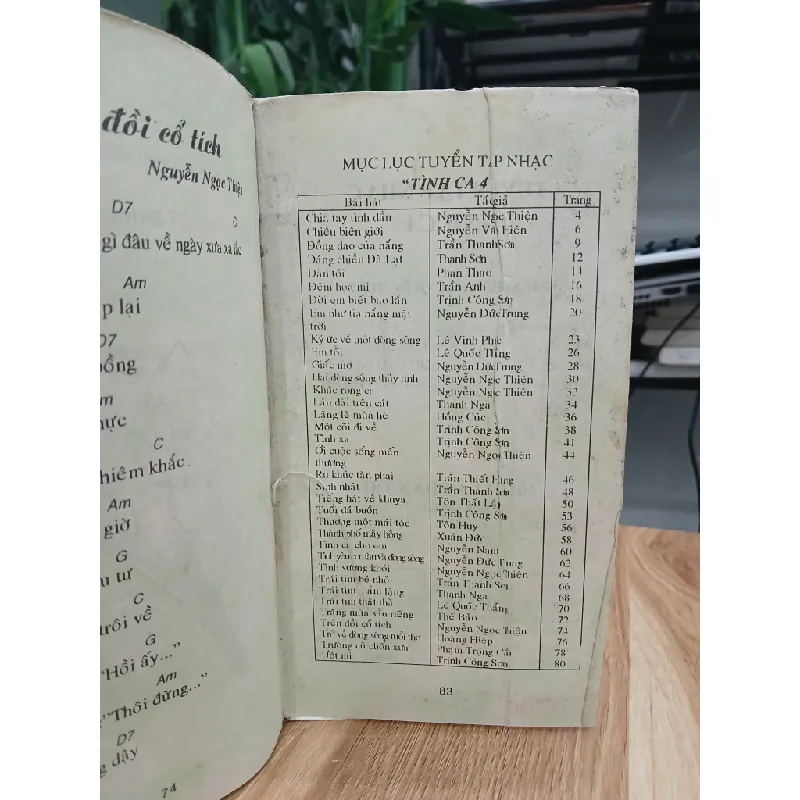 đồi cổ tích
Nguyễn Ngọc Thiện
D7 C
gì đâu về ngày xưa xa lắc
Am
p lại
D7
bồng
m
hực
C
hiêm khắc.
Am
giờ
G
u tư
C
rôi về
G
"Hồi ấy..."
Am
"Thôi đừng..."
D7
g dậy
74
MỤC LỤC TUYỂN TẬP NHẠC
"TÌNH CA 4
Bài hát Tác giả Trang
Chia tay tình đầu Nguyễn Ngọc Thiện 4
Chiều biên giới Nguyễn Văn Hiên 6
Đồng dao của nắng Trần Thanh Sơn 9
Dáng chiều Đà Lạt Thanh Sơn 12
Đàn tôi Phan Thao 14
Đêm họa mi Trần Anh 16
Đời em biết bao lần Trịnh Công Sơn 18
Em như tia nắng mặt Nguyễn Đức Trung 20
trời
Ký ức về một dòng sông Lê Vinh Phúc 23
Em tôi Lê Quốc Thắng 26
Giấc mơ Nguyễn Đức Trung 28
Hai dòng sông thủy tinh Nguyễn Ngọc Thiện 30
Khúc rong Nguyễn Ngọc Thiện 32
Lâu đài trên cát Thanh Nga 34
Lặng lẽ mùa hè Hồng Cúc 36
Một cõi đi về Trịnh Công Sơn 38
Tình xa Trịnh Công Sơn 41
Ơi cuộc sống mến Nguyễn Ngọc Thiện 44
thương
Ru khúc tàn phai Trần Thiết Hùng 46
Sinh nhật Trần Thanh Sơn 48
Tiếng hát về khuya Tôn Thất Lập 50
Tuổi đá buồn Trịnh Công Sơn 53
Thương một mái tóc Tôn Huy 56
Thành phố mây hồng Xuân Đức 58
Tình ca cho em Nguyễn Nam 60
Tình yêu và dòng sông Nguyễn Đức Trung 62
Tình sương khói Nguyễn Ngọc Thiện 64
Trái tim bé nhỏ Trần Thanh Sơn 66
Trái tim thầm lặng Thanh Nga 68
Trái tim thật thà Lê Quốc Thắng 70
Trăng mùa sầu riêng Thế Bảo 72
Trên đồi cổ tích Nguyễn Ngọc Thiện 74
Trở về dòng sông tuổi thơ Hoàng Hiệp 76
Trường cũ chốn xưa Phạm Trọng Cầu 78
Tết mi Trịnh Công Sơn 80
83